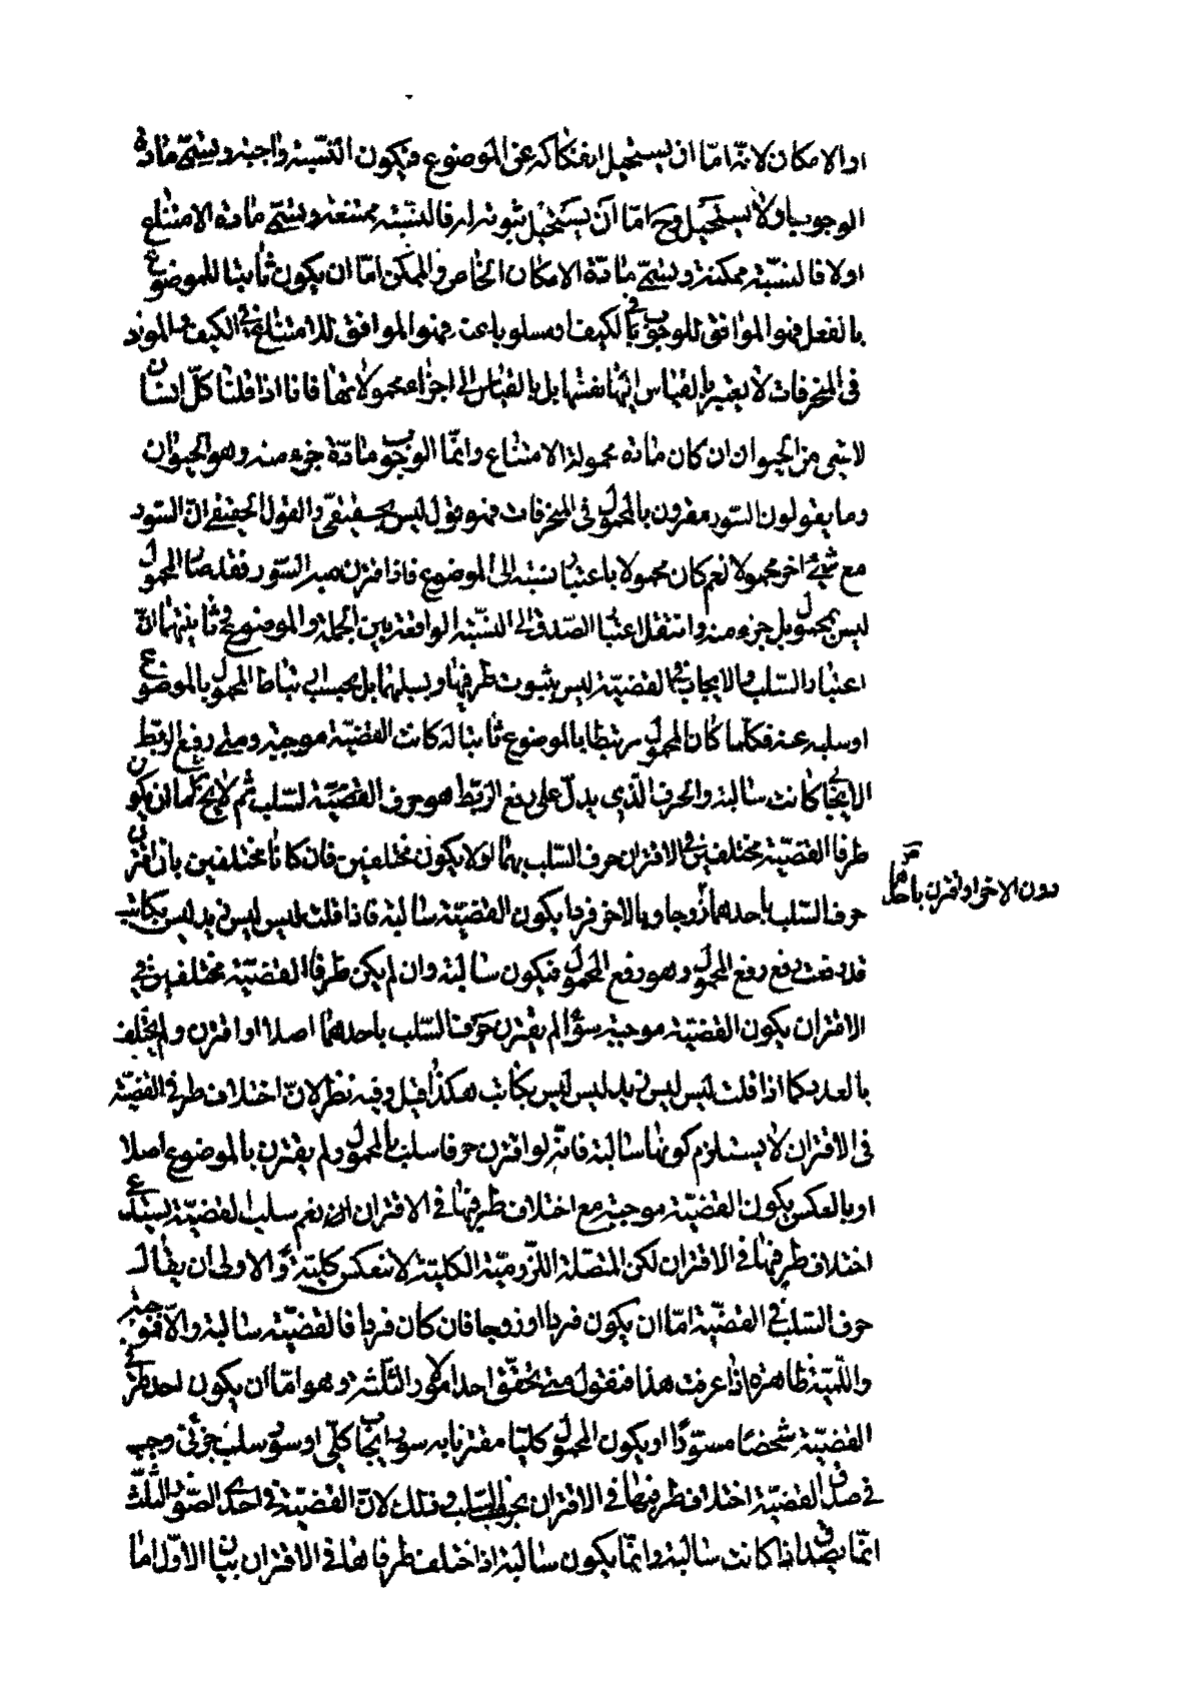 او الامكان لانه امّا ان يستحيل انفكاكه عن الموضوع فيكون النسبة واجبة ويسمّى مادة
الوجوب اولا يستحيل وح امّا ان يستحيل ثبوته له فالنسبة ممتنعة ويسمّى مادة الامتناع
اولا فالنسبة ممكنة ويسمّى مادّة الامكان الخاص والممكن امّا ان يكون ثابتا للموضوع
بالفعل فهو الموافق للوجوب في الكيف او مسلوبا عنه فهو الموافق للامتناع في الكيف والمواد
في المنحرفات لا يعتبر بالقياس اليها نفسها بل بالقياس الى اجزاء محمولاتها فانا اذا قلنا كلّ انسان
لا شئ من الحيوان ان كان مادة محموله الامتناع وانّما الوجوب مادّة جزء منه وهو الحيوان
وما يقولون السّور مقرون بالمحمول في المنحرفات فهو قول ليس بحقيقىّ والقول الحقيقى انّ السّور
مع شئ اخر محمولا نعم كان محمولا باعتبار نسبته الى الموضوع فاذا اقترن به السّور فقد صار المحمول
ليس بمحمول بل جزء منه وانتقل اعتبار الصّدق الى النسبة الواقعة بين الجملة والموضوع وثانيتهما انّ
اعتبار السّلب والايجاب في القضيّة ليس بثبوت طرفيها وسلبهما بل بحسب ارتباط المحمول بالموضوع
او سلبه عنه فكلّما كان المحمول مرتبطا بالموضوع ثابتا له كانت القضيّة موجبة ومتى رفع الربط
الايجابى كانت سالبة والحرف الّذى يدلّ على رفع الربط هو حرف السّلب ثم لا يخ امّا ان يكون
طرفا القضيّة مختلفين في الاقتران حرف السّلب بهما اولا يكون مختلفين فان كانا مختلفين بان اقترن
حرف السّلب باحدهما زوجا وبالاخر فردا يكون القضيّة سالبة فاذا قلت ليس ليس زيد ليس بكاتب
دون الاخر او اقترن باحدهما
قد رفعت رفع رفع المحمول وهو رفع المحمول فيكون سالبة وان لم يكن طرفا القضيّة مختلفين في
الاقتران يكون القضيّة موجبة سواء لم يقترن حرف السّلب باحدهما اصلا او اقترن ولم يختلف
بالعدد كما اذا قلت ليس ليس زيد ليس ليس بكاتب هكذا قيل وفيه نظر لانّ اختلاف طرفى القضيّة
في الاقتران لا يستلزم كونها سالبة فانّه لو اقترن حرفا سلب بالمحمول ولم يقترن بالموضوع اصلا
او بالعكس يكون القضيّة موجبة مع اختلاف طرفيها في الاقتران نعم سلب القضيّة يستدعى
اختلاف طرفيها في الاقتران لكن المتصلة اللّزوميّة الكلية لا تنعكس كلية والاولى ان يقال
حرف السّلب في القضيّة امّا ان يكون فردا او زوجا فان كان فردا فالقضيّة سالبة والّا فموجبة
واللّميّة ظاهرة اذا عرفت هذا فنقول متى تحقّق احد الامور الثلثة وهو امّا ان يكون احد طرفى
القضيّة شخصًا مسوّرًا او يكون المحمول كليّا مقترنا به سور ايجاب كلّى او سور سلب جزئى وجب
في صدق القضيّة اختلاف طرفيها في الاقتران بحرف السّلب وذلك لانّ القضيّة في احدى الصّور الثلث
انّما يصدق اذا كانت سالبة وانّما يكون سالبة اذا اختلف طرفاها في الاقتران بيان الاوّل امّا